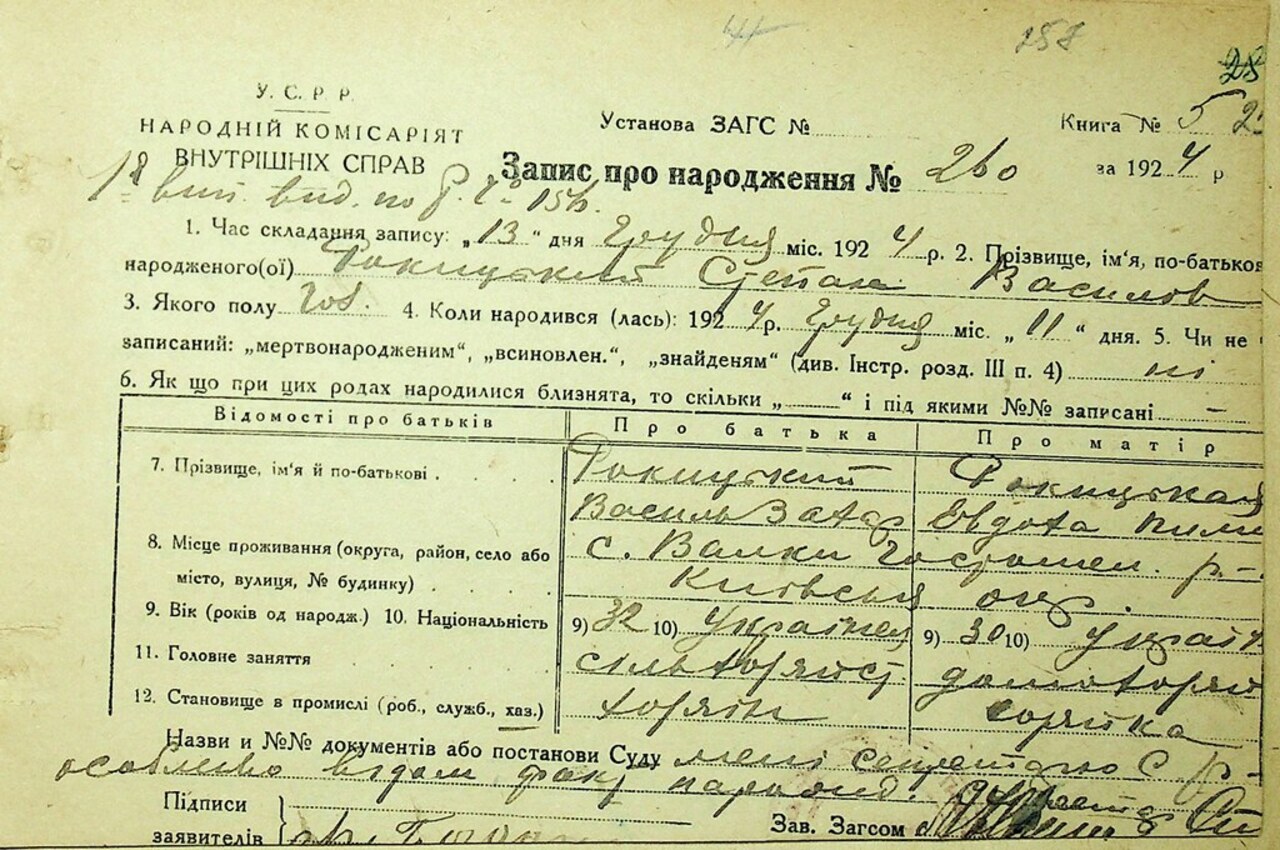 258
28
У. С. Р. Р.
НАРОДНІЙ КОМІСАРІЯТ
ВНУТРІШНІХ СПРАВ
Установа ЗАГС №
Книга № 5
Запис про народження № 260
за 1924 р
1. Час складання запису: „13“ дня Грудня міс. 1924 р. 2. Прізвище, ім'я, по-батьков
народженого(ої) Рокицький Степан Василов
3. Якого полу чол. 4. Коли народився (лась): 1924 р. Грудня міс. „11“ дня. 5. Чи не
записаний: „мертвонародженим“, „всиновлен.“, „знайденям“ (див. Інстр. розд. III п. 4) ні
6. Як що при цих родах народилися близнята, то скільки „ “ і під якими №№ записані —
Відомості про батьків Про батька Про матір
7. Прізвище, ім'я й по-батькові Рокицький Рокицькая
Василь Захар Евдоха Пили
8. Місце проживання (округа, район, село або с. Валки Гостомел. р-
місто, вулиця, № будинку) Київська окр.
9. Вік (років од народж.) 10. Національність 9) 32 10) Українец 9) 30 10) Україн
11. Головне заняття сільхозяйст домохозяй
12. Становище в промислі (роб., служб., хаз.) хозяін хозяйка
Назви и №№ документів або постанови Суду мені секретарю С р-
особлево відом факт народ.
Підписи
заявителів
Зав. Загсом